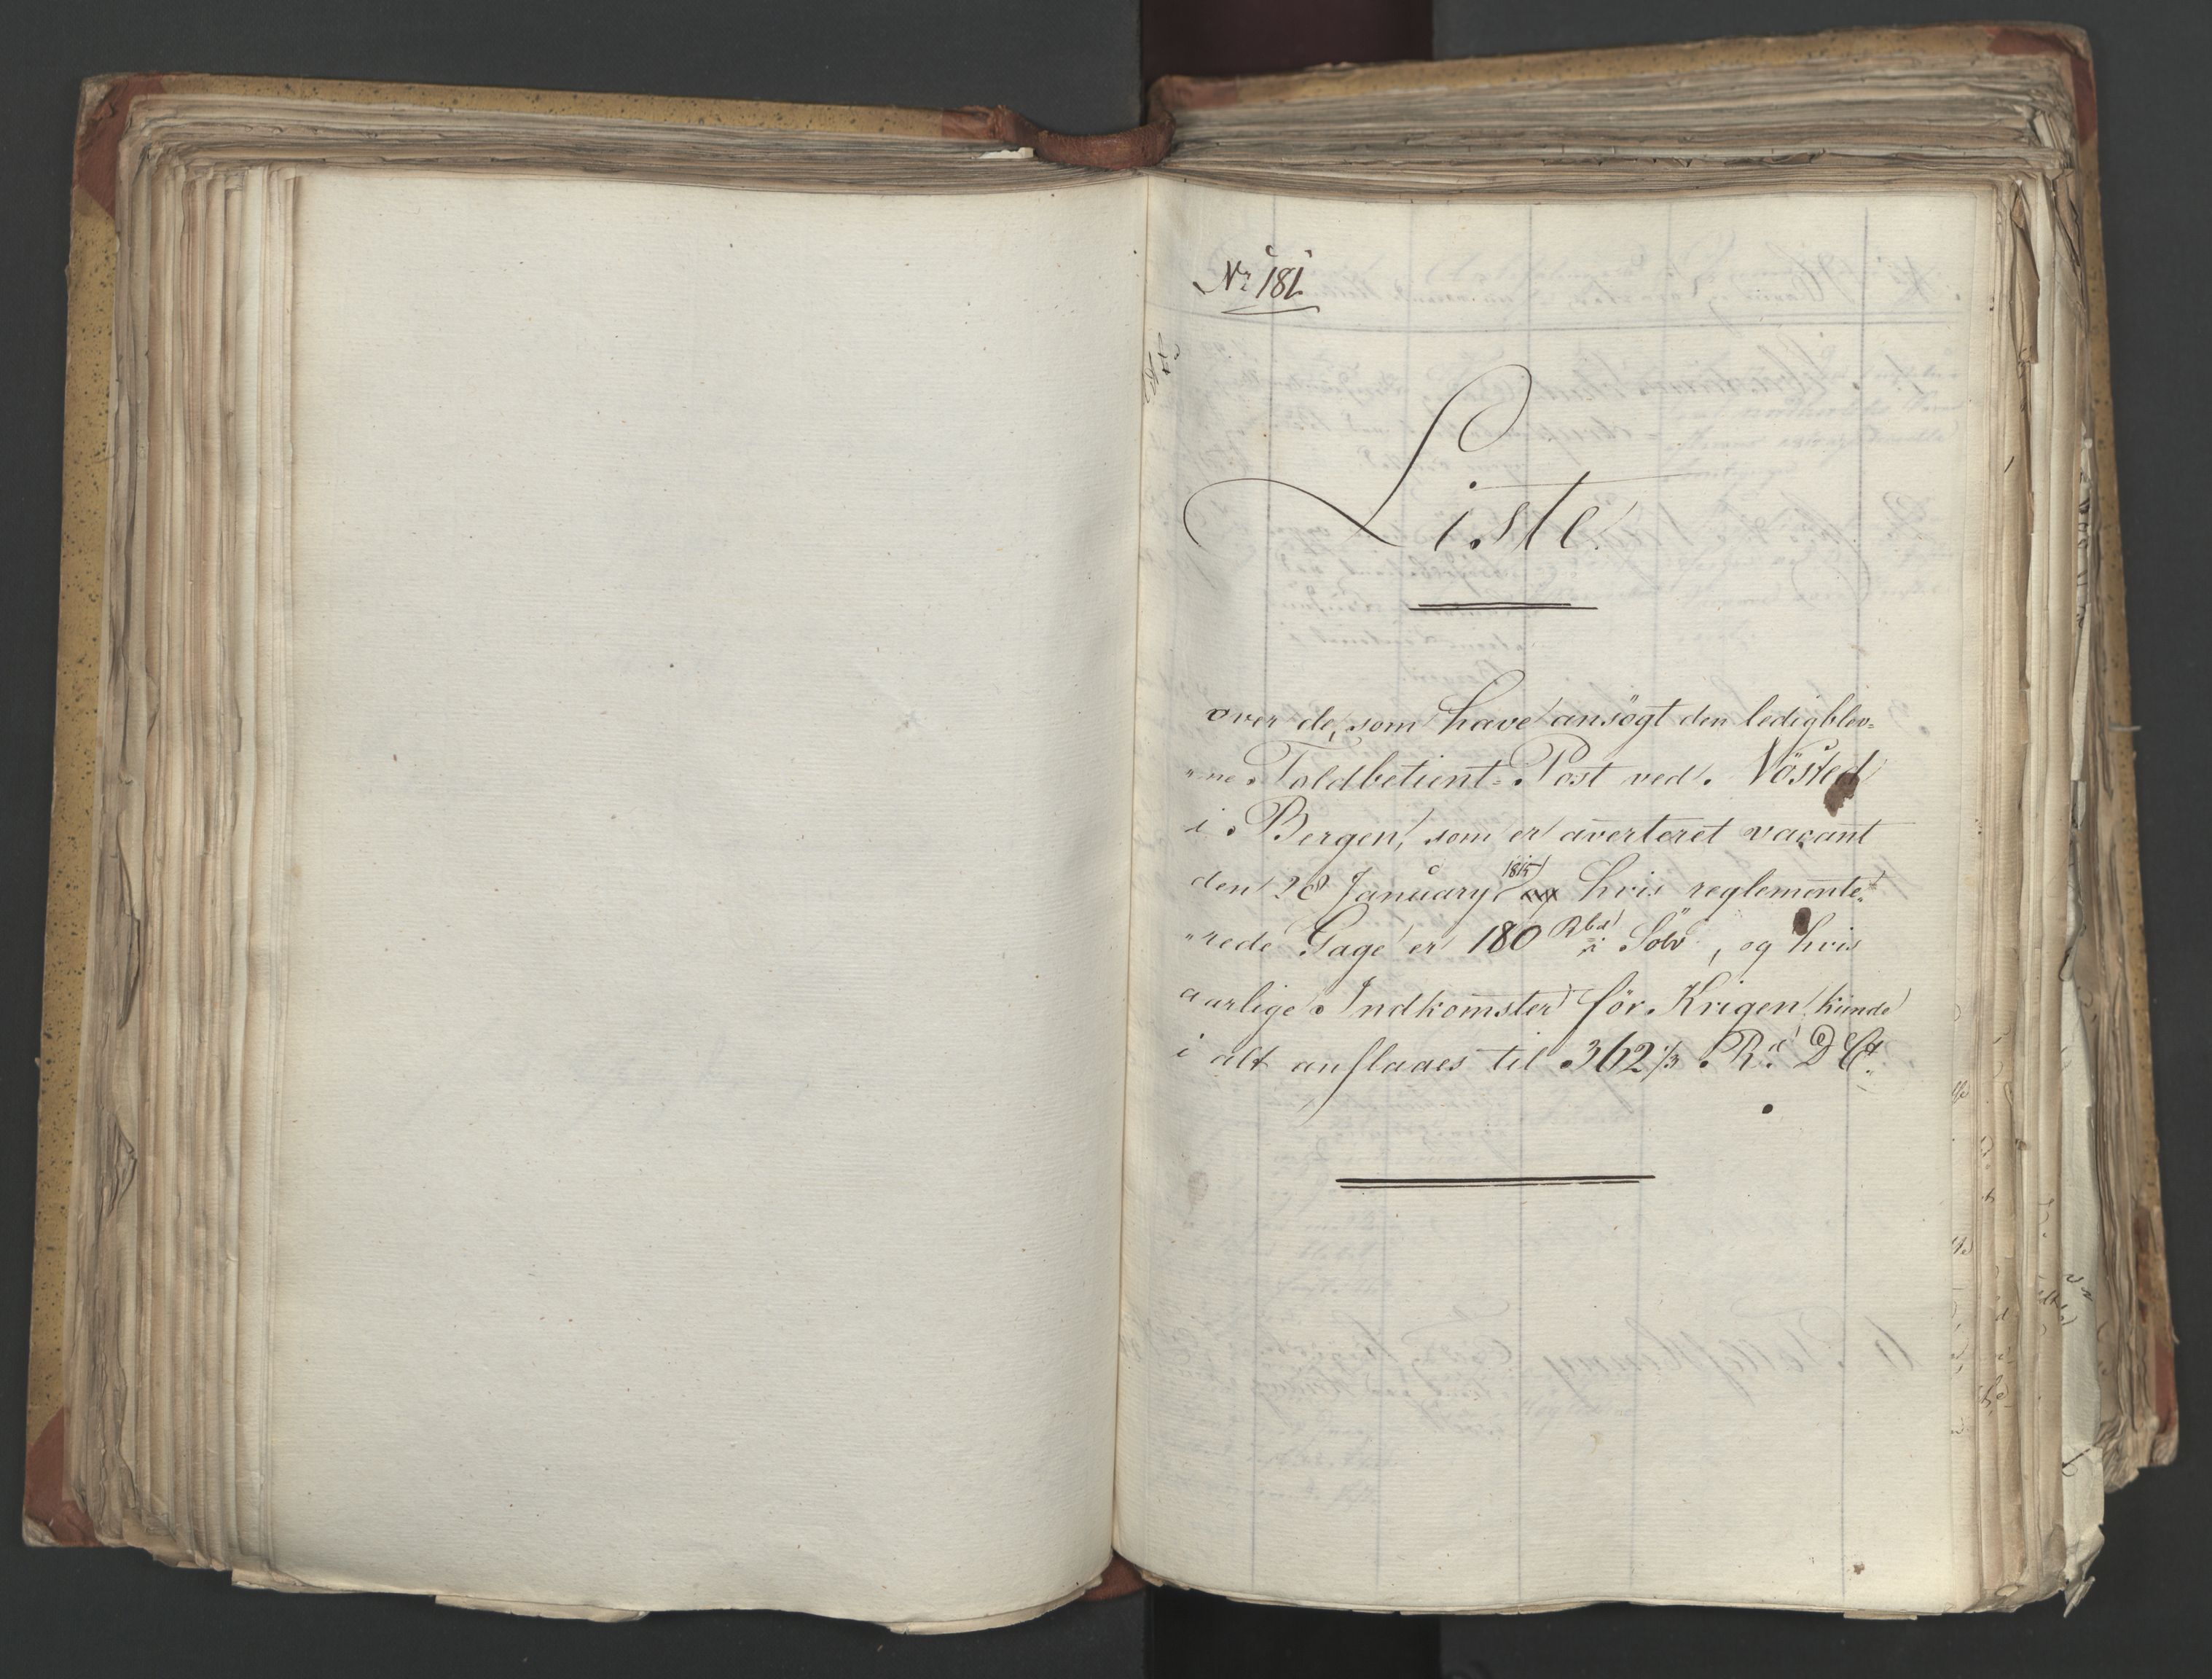 No 181.
Liste
over de, som have ansögt den ledigblev=
"ne Toldbetient-Post ved Nösted
i Bergen, som er averteret vacant
den 28 January 1815 hvis reglemente=
"rede Gage er 180 Rbd i Sölv, og hvis
aarlige Indkomster för Krigen kunde
i alt anslaaes til 362⅓ Rd D Ct.